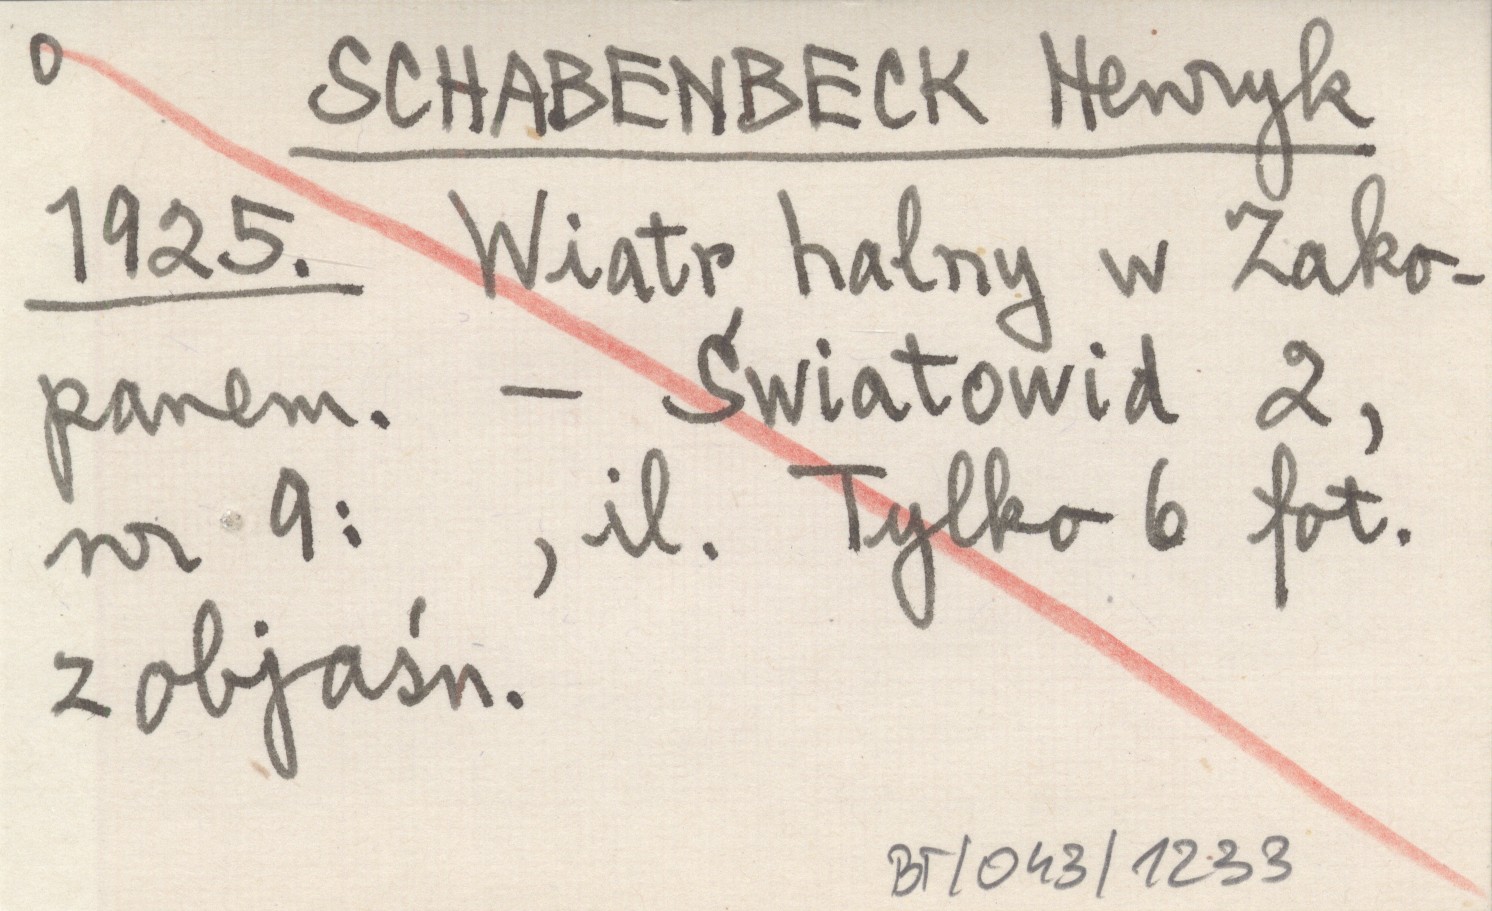 0 SCHABENBECK Henryk
1925. Wiatr halny w Zako-
panem. – Światowid 2,
nr 9: , il. Tylko 6 fot.
z objaśn.
BT/043/1233